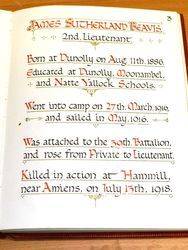 3
James Sutherland Beavis.
2nd. Lieutenant.
Born at Dunolly on Aug 11th. 1886.
Educated at Dunolly, Moonambel,
and Natte Yallock Schools.
Went into camp on 27th. March, 1916,
and sailed in May, 1916.
Was attached to the 39th. Battalion,
and rose from Private to Lieutenant.
Killed in action at Hammill,
near Amiens, on July 13th. 1918.